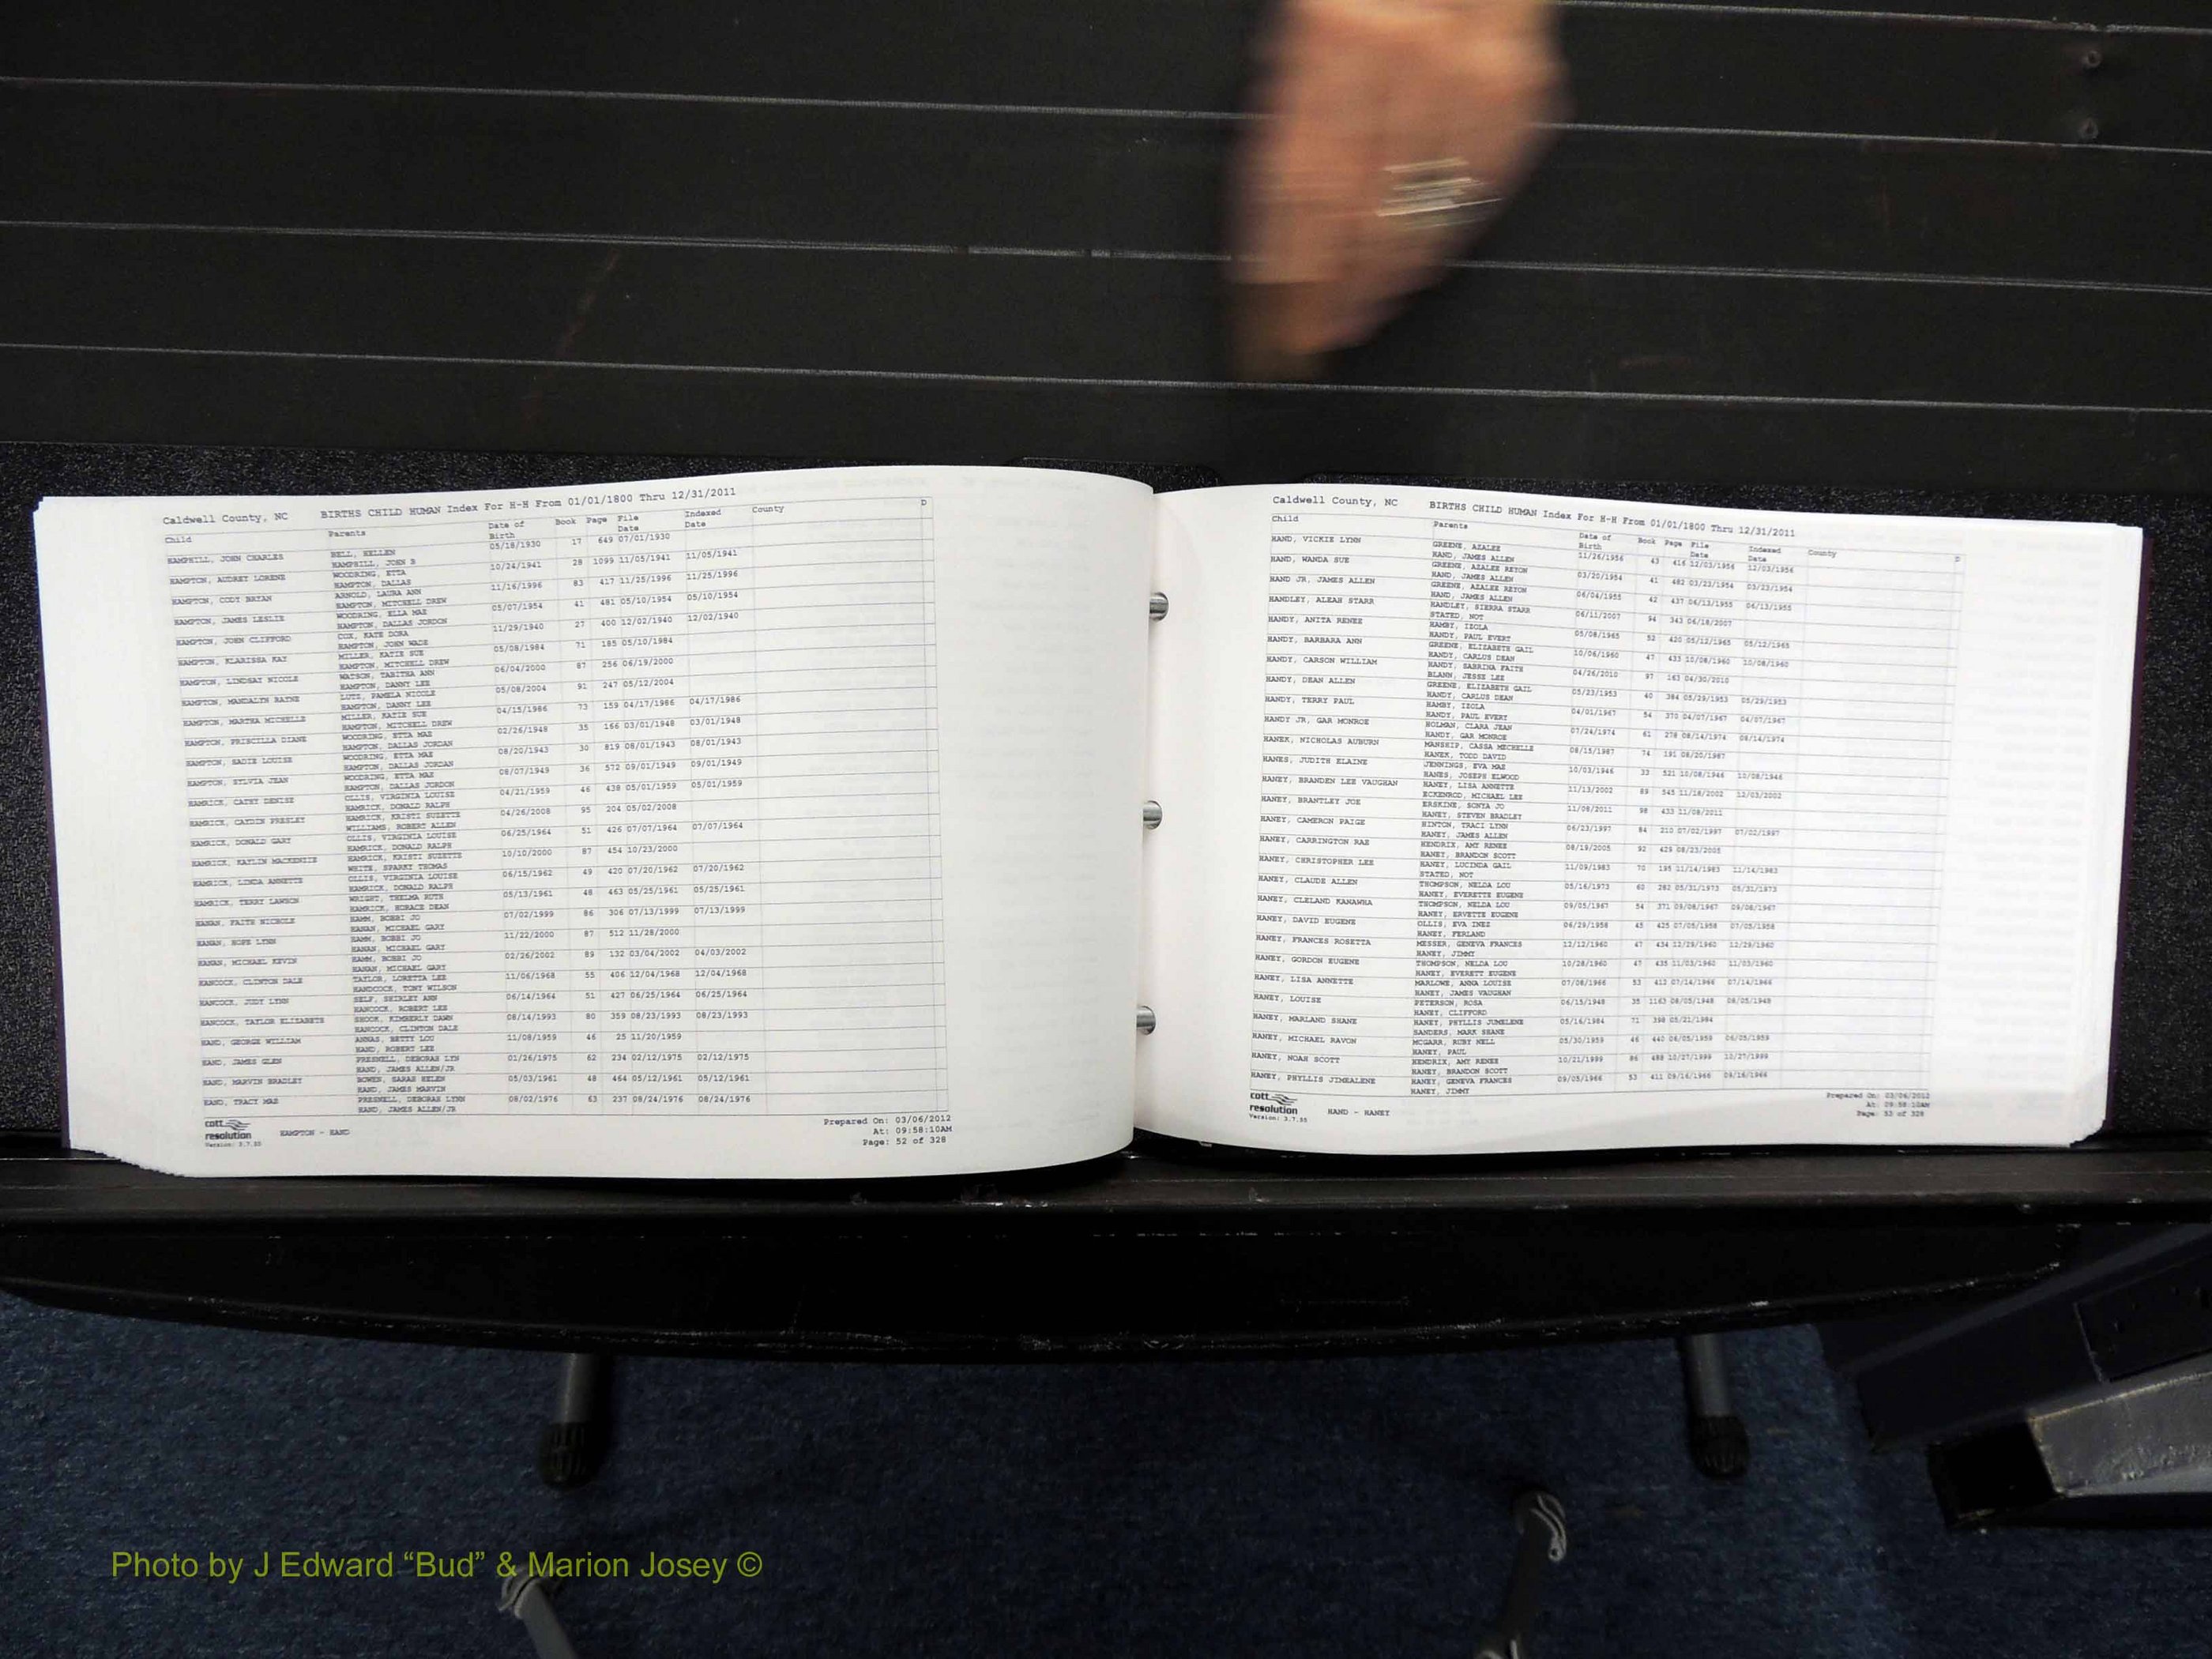 Caldwell County, NC BIRTHS CHILD HUMAN Index For H-H From 01/01/1800 Thru 12/31/2011
Child Parents Date of Birth Book Page File Date Indexed Date County D
HAMPHILL, JOHN CHARLES BELL, HELLEN 05/18/1930 17 649 07/01/1930
HAMPHILL, JOHN B
HAMPTON, AUDREY LORENE WOODRING, ETTA 10/24/1941 28 1099 11/05/1941 11/05/1941
HAMPTON, DALLAS
HAMPTON, CODY BRYAN ARNOLD, LAURA ANN 11/16/1996 83 417 11/25/1996 11/25/1996
HAMPTON, MITCHELL DREW
HAMPTON, JAMES LESLIE WOODRING, ELLA MAE 05/07/1954 41 481 05/10/1954 05/10/1954
HAMPTON, DALLAS JORDON
HAMPTON, JOHN CLIFFORD COX, KATE DORA 11/29/1940 27 400 12/02/1940 12/02/1940
HAMPTON, JOHN WADE
HAMPTON, KLARISSA KAY MILLER, KATIE SUE 05/08/1984 71 185 05/10/1984
HAMPTON, MITCHELL DREW
HAMPTON, LINDSAY NICOLE WATSON, TABITHA ANN 06/04/2000 87 256 06/19/2000
HAMPTON, DANNY LEE
HAMPTON, MANDALYN RAYNE LUTZ, PAMELA NICOLE 05/08/2004 91 247 05/12/2004
HAMPTON, DANNY LEE
HAMPTON, MARTHA MICHELLE MILLER, KATIE SUE 04/15/1986 73 159 04/17/1986 04/17/1986
HAMPTON, MITCHELL DREW
HAMPTON, PRISCILLA DIANE WOODRING, ETTA MAE 02/26/1948 35 166 03/01/1948 03/01/1948
HAMPTON, DALLAS JORDAN
HAMPTON, SADIE LOUISE WOODRING, ETTA MAE 08/20/1943 30 819 08/01/1943 08/01/1943
HAMPTON, DALLAS JORDAN
HAMPTON, SYLVIA JEAN WOODRING, ETTA MAE 08/07/1949 36 572 09/01/1949 09/01/1949
HAMPTON, DALLAS JORDON
HAMRICK, CATHY DENISE OLLIS, VIRGINIA LOUISE 04/21/1959 46 438 05/01/1959 05/01/1959
HAMRICK, DONALD RALPH
HAMRICK, CAYDIN PRESLEY HAMRICK, KRISTI SUZETTE 04/26/2008 95 204 05/02/2008
WILLIAMS, ROBERT ALLEN
HAMRICK, DONALD GARY OLLIS, VIRGINIA LOUISE 06/25/1964 51 426 07/07/1964 07/07/1964
HAMRICK, DONALD RALPH
HAMRICK, KAYLIN MACKENZIE HAMRICK, KRISTI SUZETTE 10/10/2000 87 454 10/23/2000
WHITE, SPARKY THOMAS
HAMRICK, LINDA ANNETTE OLLIS, VIRGINIA LOUISE 06/15/1962 49 420 07/20/1962 07/20/1962
HAMRICK, DONALD RALPH
HAMRICK, TERRY LAWSON WRIGHT, THELMA RUTH 05/13/1961 48 463 05/25/1961 05/25/1961
HAMRICK, HORACE DEAN
HANAN, FAITH NICHOLE HAMM, BOBBI JO 07/02/1999 86 306 07/13/1999 07/13/1999
HANAN, MICHAEL GARY
HANAN, HOPE LYNN HAMM, BOBBI JO 11/22/2000 87 512 11/28/2000
HANAN, MICHAEL GARY
HANAN, MICHAEL KEVIN HAMM, BOBBI JO 02/26/2002 89 132 03/04/2002 04/03/2002
HANAN, MICHAEL GARY
HANCOCK, CLINTON DALE TAYLOR, LORETTA LEE 11/06/1968 55 406 12/04/1968 12/04/1968
HANDCOCK, TONY WILSON
HANCOCK, JUDY LYNN SELF, SHIRLEY ANN 06/14/1964 51 427 06/25/1964 06/25/1964
HANCOCK, ROBERT LEE
HANCOCK, TAYLOR ELIZABETH SHOOK, KIMBERLY DAWN 08/14/1993 80 359 08/23/1993 08/23/1993
HANCOCK, CLINTON DALE
HAND, GEORGE WILLIAM ANNAS, BETTY LOU 11/08/1959 46 25 11/20/1959
HAND, ROBERT LEE
HAND, JAMES GLEN PRESNELL, DEBORAH LYN 01/26/1975 62 234 02/12/1975 02/12/1975
HAND, JAMES ALLEN/JR
HAND, MARVIN BRADLEY BOWEN, SARAH HELEN 05/03/1961 48 464 05/12/1961 05/12/1961
HAND, JAMES MARVIN
HAND, TRACY MAE PRESNELL, DEBORAH LYNN 08/02/1976 63 237 08/24/1976 08/24/1976
HAND, JAMES ALLEN/JR
cott
resolution
Version: 3.7.55
HAMPTON - HAND
Prepared On: 03/06/2012
At: 09:58:10AM
Page: 52 of 328
Caldwell County, NC BIRTHS CHILD HUMAN Index For H-H From 01/01/1800 Thru 12/31/2011
Child Parents Date of Birth Book Page File Date Indexed Date County D
HAND, VICKIE LYNN GREENE, AZALEE 11/26/1956 43 416 12/03/1956 12/03/1956
HAND, JAMES ALLEN
HAND, WANDA SUE GREENE, AZALEE REYON 03/20/1954 41 482 03/23/1954 03/23/1954
HAND, JAMES ALLEN
HAND JR, JAMES ALLEN GREENE, AZALEE REYON 06/04/1955 42 437 06/13/1955 06/13/1955
HAND, JAMES ALLEN
HANDLEY, ALEAH STARR HANDLEY, SIERRA STARR 06/11/2007 94 343 06/18/2007
STATED, NOT
HANDY, ANITA RENEE HAMBY, IZOLA 05/08/1965 52 420 05/12/1965 05/12/1965
HANDY, PAUL EVERT
HANDY, BARBARA ANN GREENE, ELIZABETH GAIL 10/06/1960 47 433 10/08/1960 10/08/1960
HANDY, CARLUS DEAN
HANDY, CARSON WILLIAM HANDY, SABRINA FAITH 04/26/2010 97 163 04/30/2010
BLANN, JESSE LEE
HANDY, DEAN ALLEN GREENE, ELIZABETH GAIL 05/23/1953 40 384 05/29/1953 05/29/1953
HANDY, CARLUS DEAN
HANDY, TERRY PAUL HAMBY, IZOLA 04/01/1967 54 370 04/07/1967 04/07/1967
HANDY, PAUL EVERT
HANDY JR, GAR MONROE HOLMAN, CLARA JEAN 07/24/1974 61 278 08/14/1974 08/14/1974
HANDY, GAR MONROE
HANEK, NICHOLAS AUBURN MANSHIP, CASSA MECHELLE 08/15/1987 74 191 08/20/1987
HANEK, TODD DAVID
HANES, JUDITH ELAINE JENNINGS, EVA MAE 10/03/1946 33 521 10/08/1946 10/08/1946
HANES, JOSEPH ELWOOD
HANEY, BRANDEN LEE VAUGHAN HANEY, LISA ANNETTE 11/13/2002 89 545 11/18/2002 12/03/2002
ECKENROD, MICHAEL LEE
HANEY, BRANTLEY JOE ERSKINE, SONYA JO 11/08/2011 98 433 11/08/2011
HANEY, STEVEN BRADLEY
HANEY, CAMERON PAIGE HINTON, TRACI LYNN 06/23/1997 84 210 07/02/1997 07/02/1997
HANEY, JAMES ALLEN
HANEY, CARRINGTON RAE HENDRIX, AMY RENEE 08/19/2005 92 429 08/23/2005
HANEY, BRANDON SCOTT
HANEY, CHRISTOPHER LEE HANEY, LUCINDA GAIL 11/09/1983 70 195 11/14/1983 11/14/1983
STATED, NOT
HANEY, CLAUDE ALLEN THOMPSON, NELDA LOU 05/16/1973 60 282 05/31/1973 05/31/1973
HANEY, EVERETTE EUGENE
HANEY, CLELAND KANAWHA THOMPSON, NELDA LOU 09/05/1967 54 371 09/08/1967 09/08/1967
HANEY, ERVETTE EUGENE
HANEY, DAVID EUGENE OLLIS, EVA INEZ 06/29/1958 45 425 07/05/1958 07/05/1958
HANEY, FERLAND
HANEY, FRANCES ROSETTA MESSER, GENEVA FRANCES 12/12/1960 47 434 12/29/1960 12/29/1960
HANEY, JIMMY
HANEY, GORDON EUGENE THOMPSON, NELDA LOU 10/28/1960 47 435 11/03/1960 11/03/1960
HANEY, EVERETT EUGENE
HANEY, LISA ANNETTE MARLOWE, ANNA LOUISE 07/08/1966 53 412 07/14/1966 07/14/1966
HANEY, JAMES VAUGHAN
HANEY, LOUISE PETERSON, ROSA 06/15/1948 35 1163 08/05/1948 08/05/1948
HANEY, CLIFFORD
HANEY, MARLAND SHANE HANEY, PHYLLIS JUMELENE 05/16/1984 71 398 05/21/1984
SANDERS, MARK SHANE
HANEY, MICHAEL RAVON MCGARR, RUBY NELL 05/30/1959 46 440 06/05/1959 06/05/1959
HANEY, PAUL
HANEY, NOAH SCOTT HENDRIX, AMY RENEE 10/21/1999 86 488 10/27/1999 10/27/1999
HANEY, BRANDON SCOTT
HANEY, PHYLLIS JIMEALENE HANEY, GENEVA FRANCES 09/05/1966 53 411 09/16/1966 09/16/1966
HANEY, JIMMY
cott
resolution
Version: 3.7.55
HAND - HANEY
Prepared On: 03/06/2012
At: 09:58:10AM
Page: 53 of 328
Photo by J Edward “Bud” & Marion Josey ©